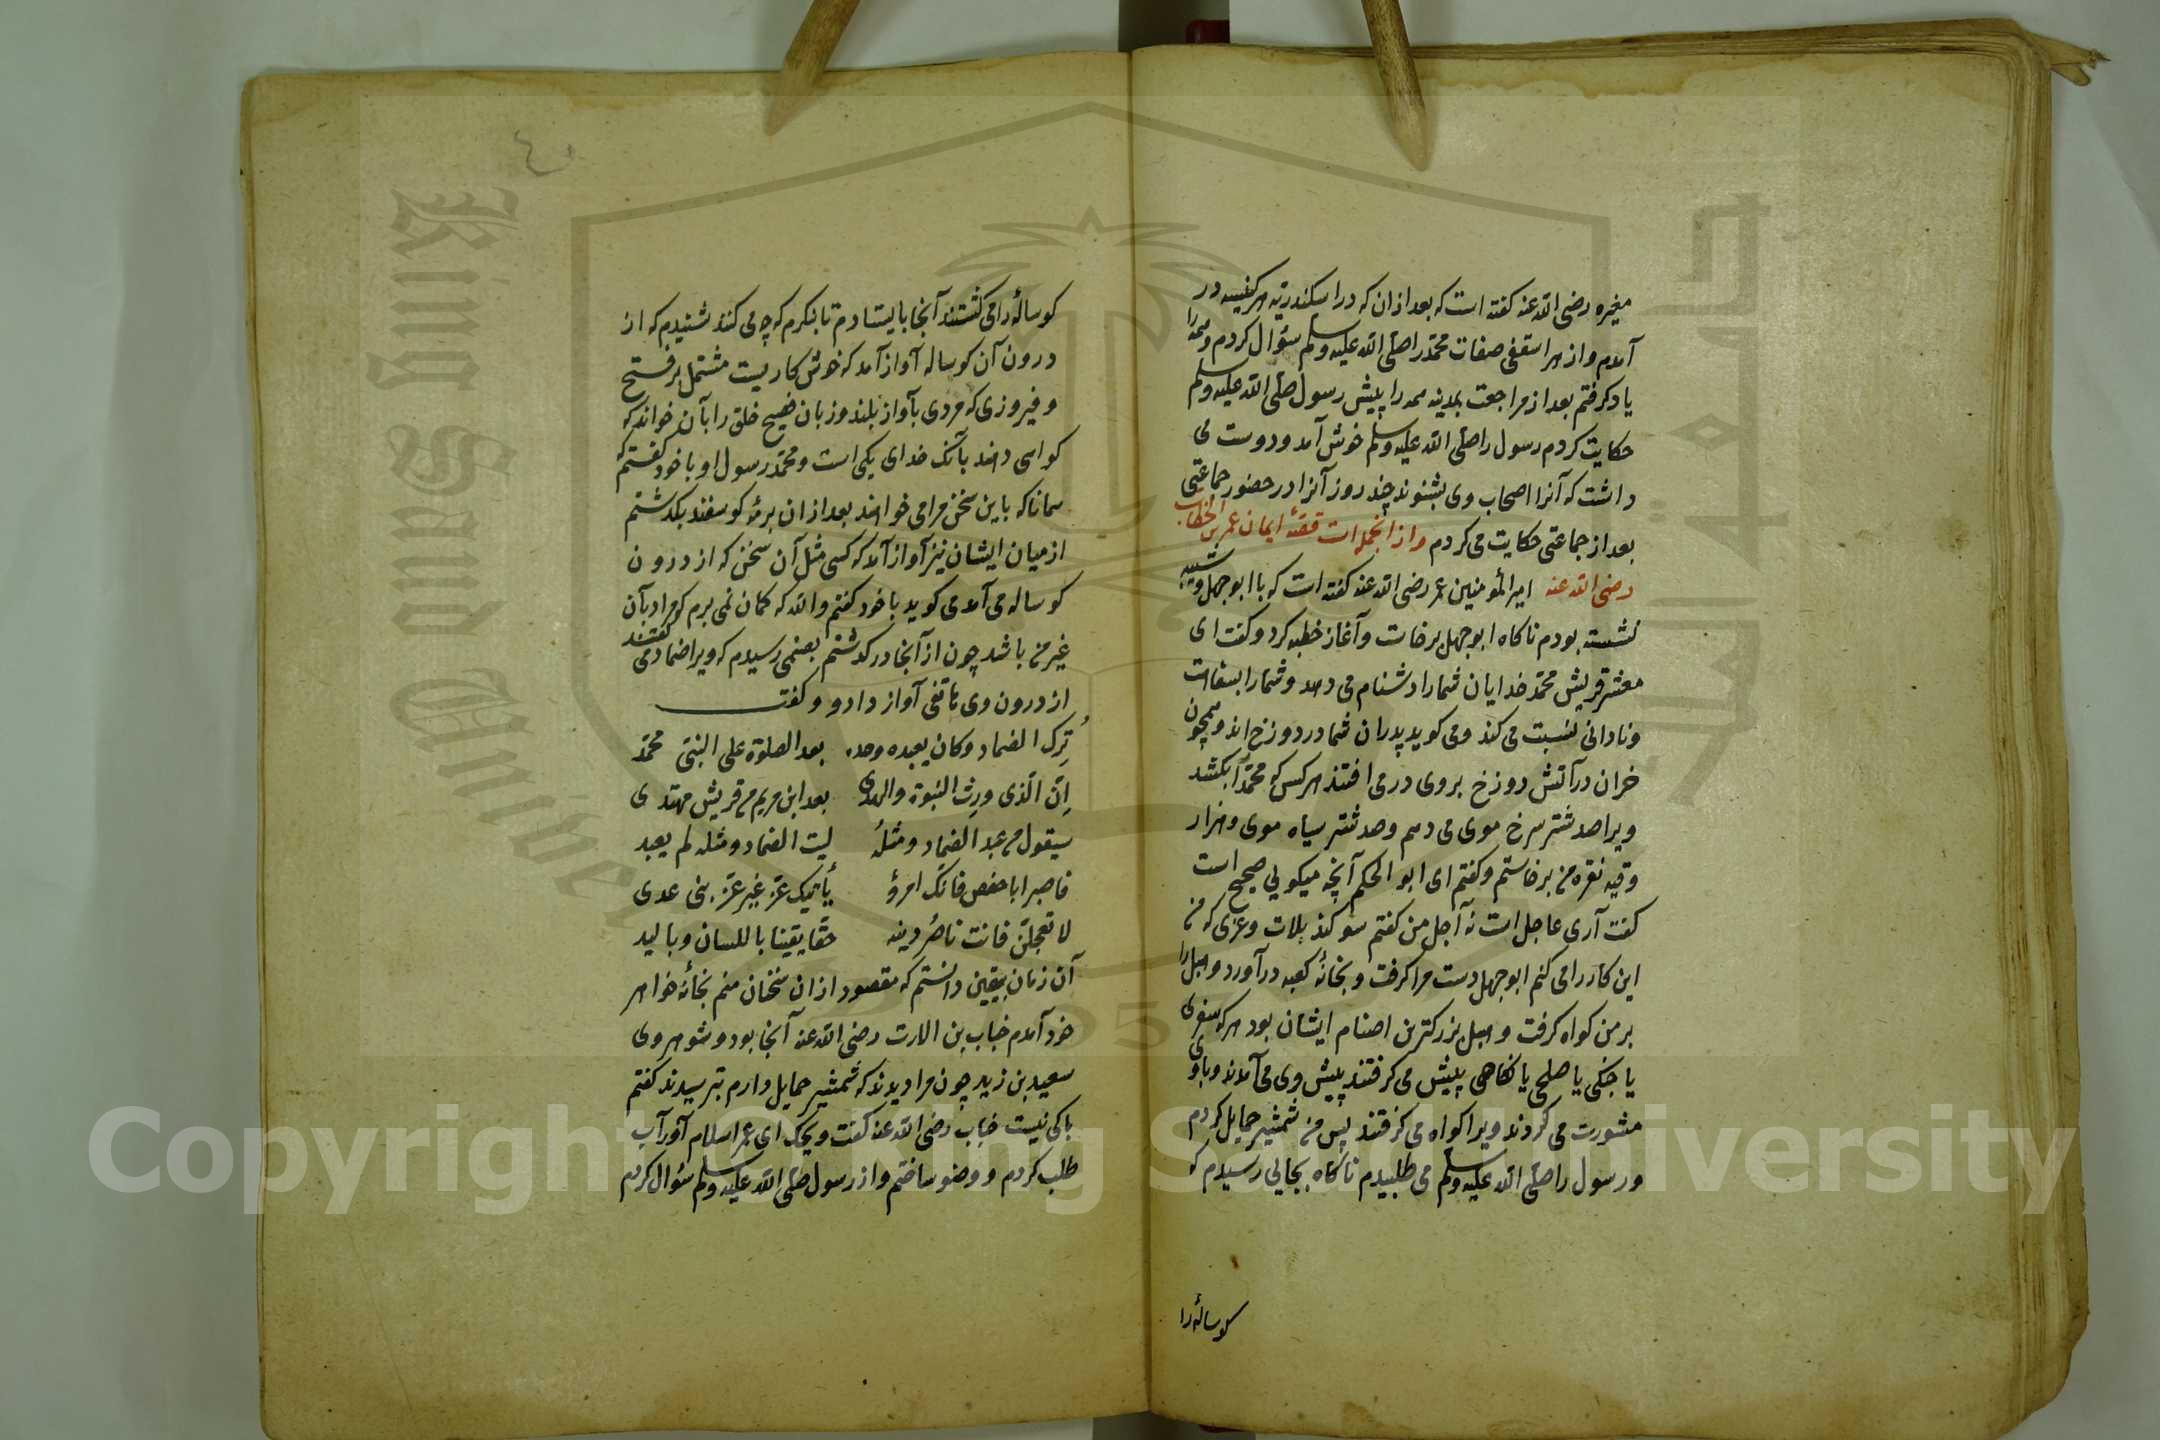 مغیره رضی الله عنه کفته است که بعد ازان که در اسکندریه بهر کنیسه در
آمدم و از هر اسقفی صفات محمد را صلی الله علیه وسلم سؤال کردم وهمه را
یاد کرفتم بعد از مراجعت بمدینه همه را پیش رسول صلی الله علیه وسلم
حکایت کردم رسول را صلی الله علیه وسلم خوش آمد ودوست می
داشت که آنرا اصحاب وی بشنوند چند روز آنرا در حضور جماعتی
بعد از جماعتی حکایت می کردم واز انجمله است قصهٔ ایمان عمر بن الخطاب
رضی الله عنه امیر المؤمنین عمر رضی الله عنه کفته است که با ابو جهل وشیبه
نشسته بودم ناکاه ابو جهل برخاست وآغاز خطبه کرد وکفت ای
معشر قریش محمد خدایان شما را دشنام می دهد وشما را بسفاهت
ونادانی نسبت می کند ومی کوید پدران شما در دوزخ اند وهمچون
خران در آتش دوزخ بروی در می افتند هر کس که محمد را بکشد
ویرا صد شتر سرخ موی می دهم وصد شتر سیاه موی وهزار
وقیه نقره من برخاستم وکفتم ای ابو الحکم آنچه میکویی صحیح است
کفت آری عاجل است نه آجل من کفتم سوکند بلات وعزی که من
این کار را می کنم ابو جهل دست مرا کرفت وبخانهٔ کعبه در آورد وهبل را
بر من کواه کرفت وهبل بزرکترین اصنام ایشان بود هر که سفری
یا جنکی یا صلحی یا نکاحی پیش می کرفتند پیش وی می آمدند وباوی
مشورت می کردند ویرا کواه می کرفتند پس من شمشیر حمایل کردم
ورسول را صلی الله علیه وسلم می طلبیدم ناکاه بجایی رسیدم که
کوسالهٔ را
کوسالهٔ را می کشتند آنجا بایستادم تا بنکرم که چه می کنند شنیدم که از
درون آن کوساله آواز آمد که خوش کاریست مشتمل بر فتح
وفیروزی که مردی بآواز بلند وزبان فصیح خلق را بآن خواند که
کواهی دهند بآنک خدای یکی است ومحمد رسول او با خود کفتم که
همانا که باین سخن مرا می خواهند بعد ازان برمهٔ کوسفند بکذشتم
از میان ایشان نیز آواز آمد که کسی مثل آن سخن که از درون
کوساله می آمد می کوید با خود کفتم والله که کمان نمی برم که مراد بآن
غیر من باشد چون از آنجا در کذشتم بصنمی رسیدم که ویرا ضماد می کفتند
از درون وی هاتفی آواز داد و وکفت
تُرِک الضماد وکان یعبد وحده بعد الصلوة علی النبی محمد
اِنّ الّذی ورث النبوة والهدی بعد ابن مریم من قریش مهتدی
سیقول من عبد الضماد ومثلهُ لیت الضماد ومثله لم یعبد
فاصبر ابا حفص فانک امرؤ یأتیک عزّ غیر عزّ بنی عدی
لا تعجلنّ فانت ناصُر دینه حقا یقینا باللسان وبالید
آن زمان بیقین دانستم که مقصود ازان سخنان منم بخانهٔ خواهر
خود آمدم خباب بن الارت رضی الله عنه آنجا بود وشوهر وی
سعید بن زید چون مرا دیدند که شمشیر حمایل دارم بترسیدند کفتم
باکی نیست خباب رضی الله عنه کفت ویحک ای عمر اسلام آور آب
طلب کردم ووضو ساختم واز رسول صلی الله علیه وسلم سؤال کردم
Copyright © King Saud University